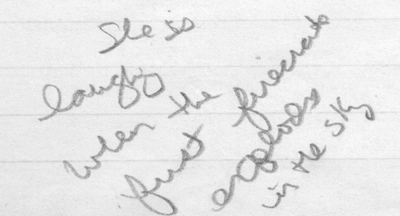 She is
laughing
when the
first firecrack
explodes
in the sky